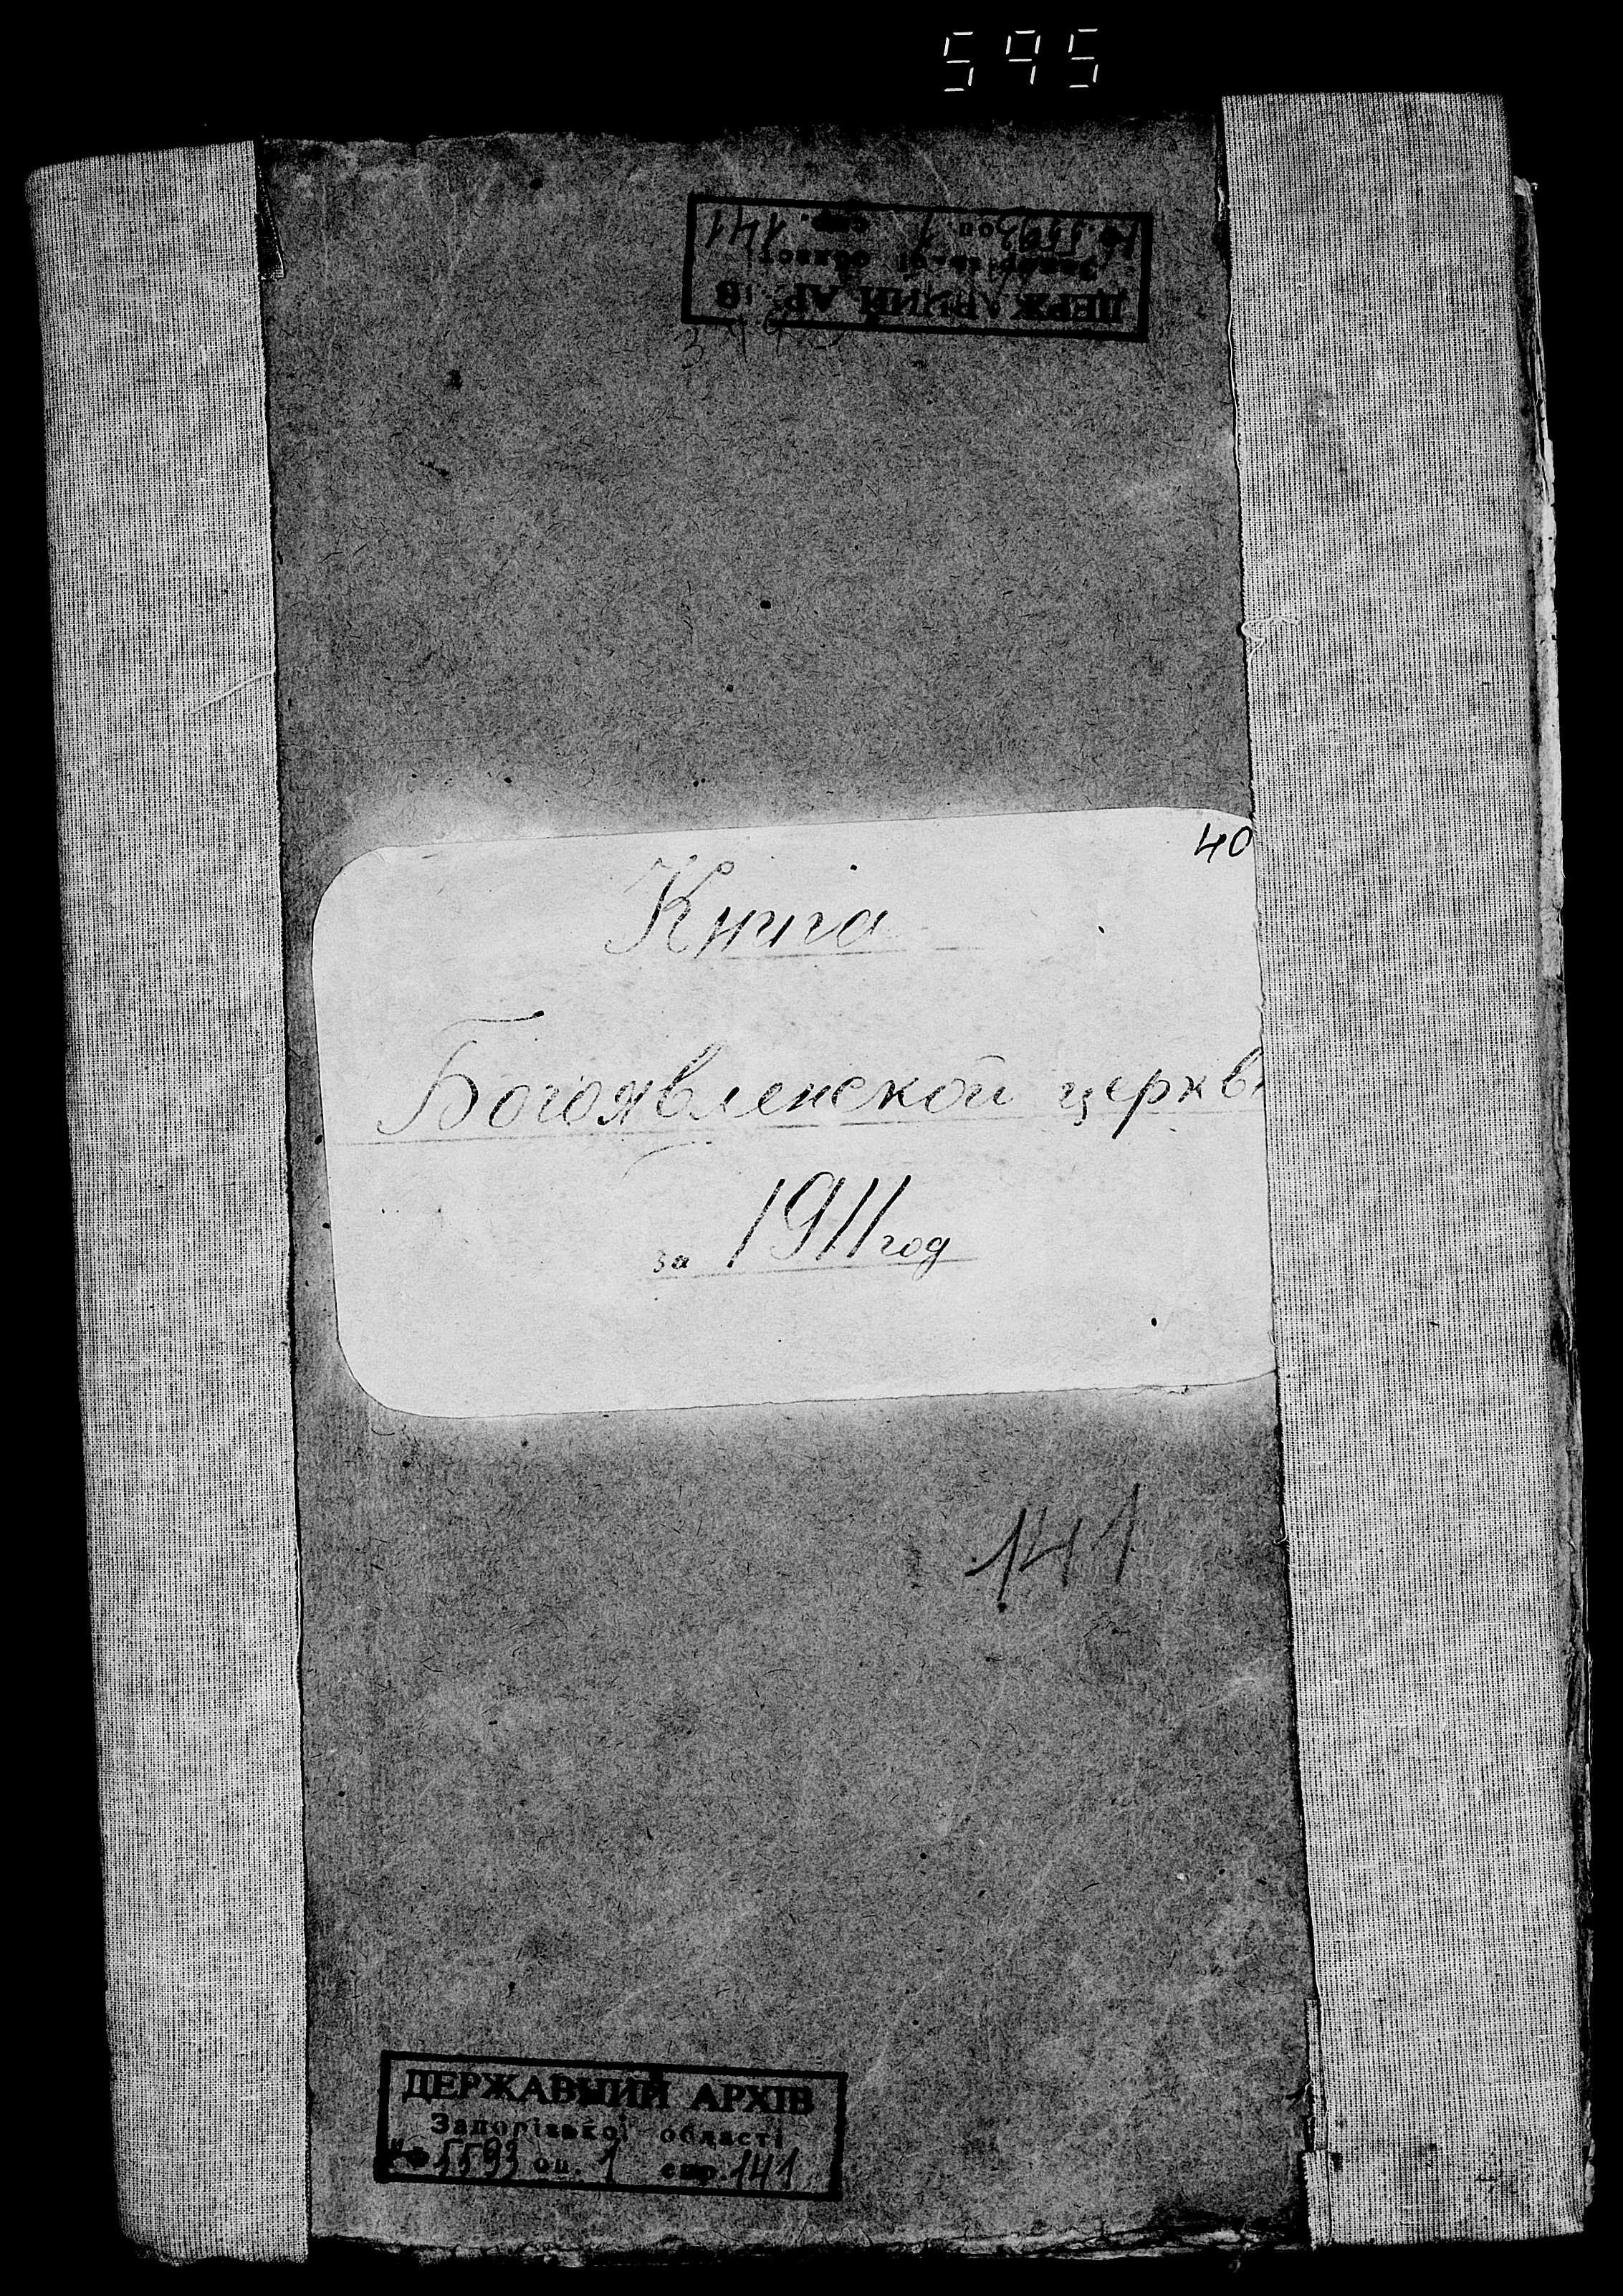 595
ДЕРЖАВНИЙ АРХІВ
Запорізької області
ф. 5593 оп. 1 спр. 141
40
Книга
Богоявленской церкв
за 1911 год
141
ДЕРЖАВНИЙ АРХІВ
Запорізької області
ф 5593 оп. 1 спр. 141